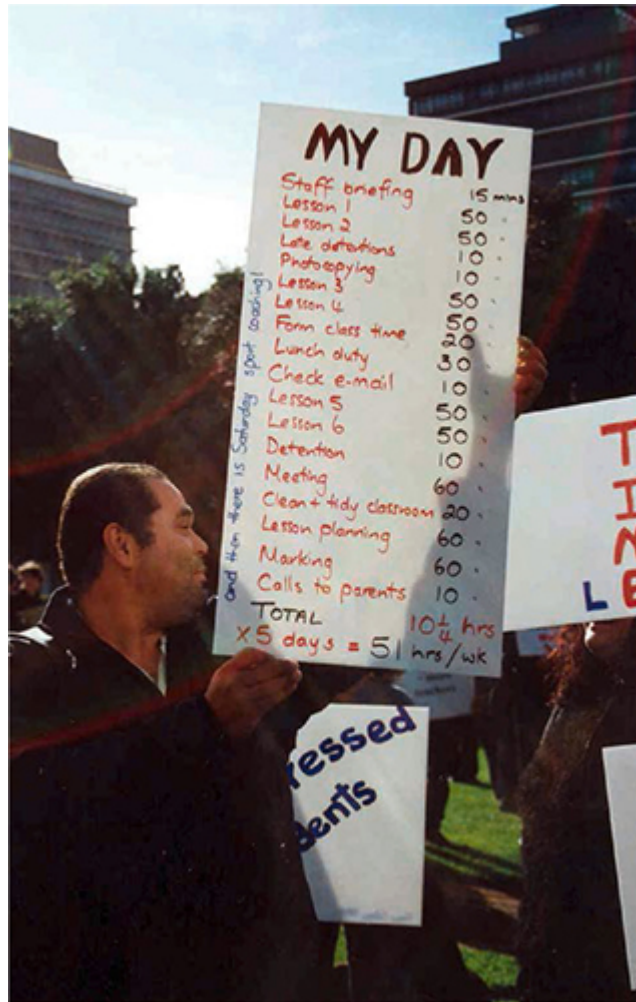 MY DAY
Staff briefing 15 mins
Lesson 1 50 "
Lesson 2 50 "
Late detentions 10 "
Photocopying 10 "
Lesson 3 50 "
Lesson 4 50 "
Form class time 20 "
Lunch duty 30 "
Check e-mail 10 "
Lesson 5 50 "
Lesson 6 50 "
Detention 10 "
Meeting 60 "
Clean + tidy classroom 20 "
Lesson planning 60 "
Marking 60 "
Calls to parents 10 "
TOTAL 10 1/4 hrs
x5 days = 51 hrs/wk
and then there is Saturday sport coaching!
ressed
dents